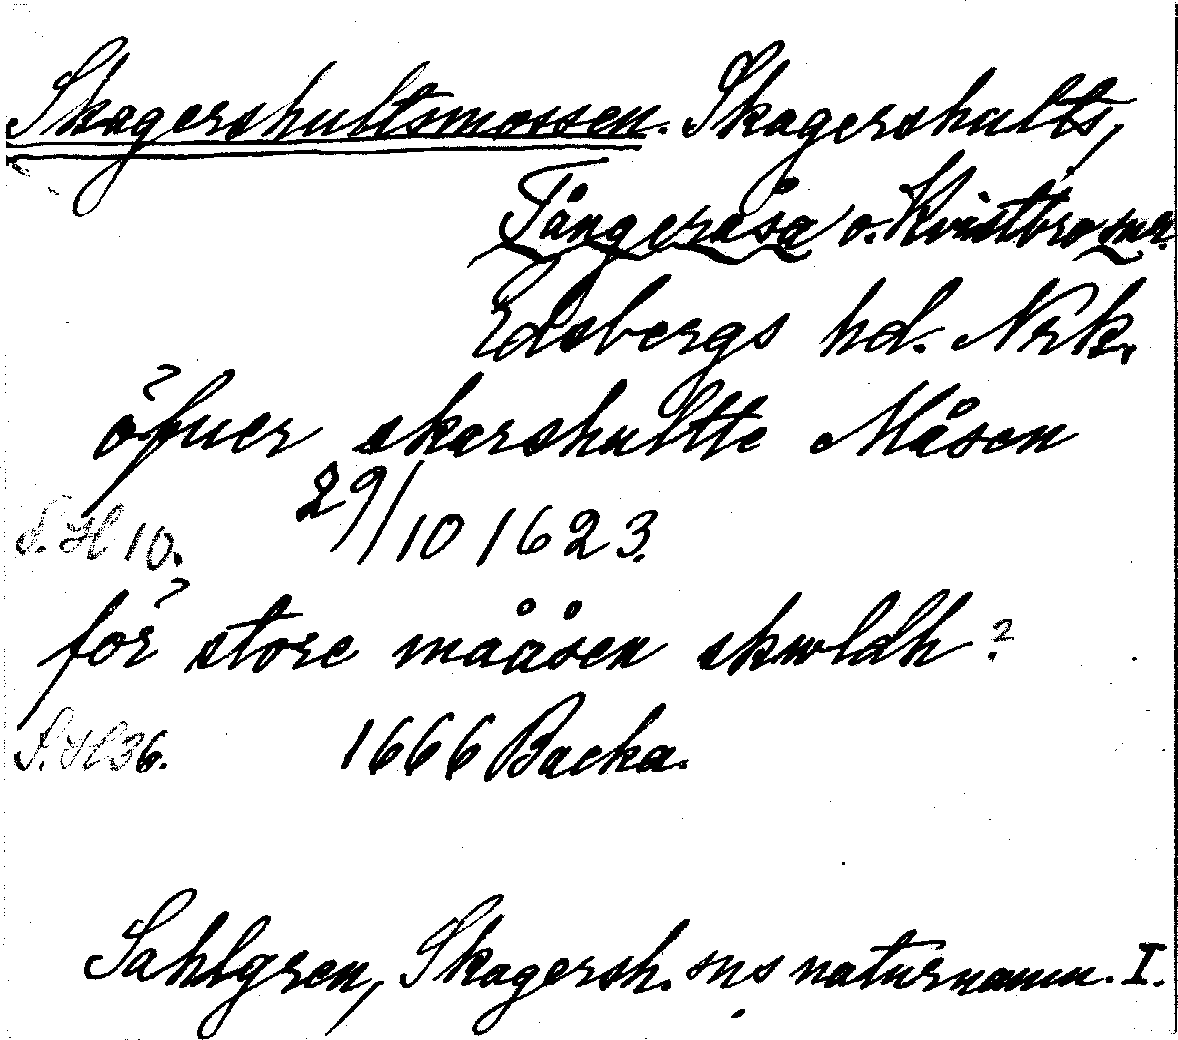 Skagershultsmossen. Skagershults,
Tångeråsa o. Kvistbro snr.
Edsbergs hd. Nrk.
öfuer skarshultte Måsen
S.H 10. 29/10 1623.
för store mååsen skwldh?
S.H 36. 1666 Backa.
Sahlgren, Skagersh. sns naturnamn. I.